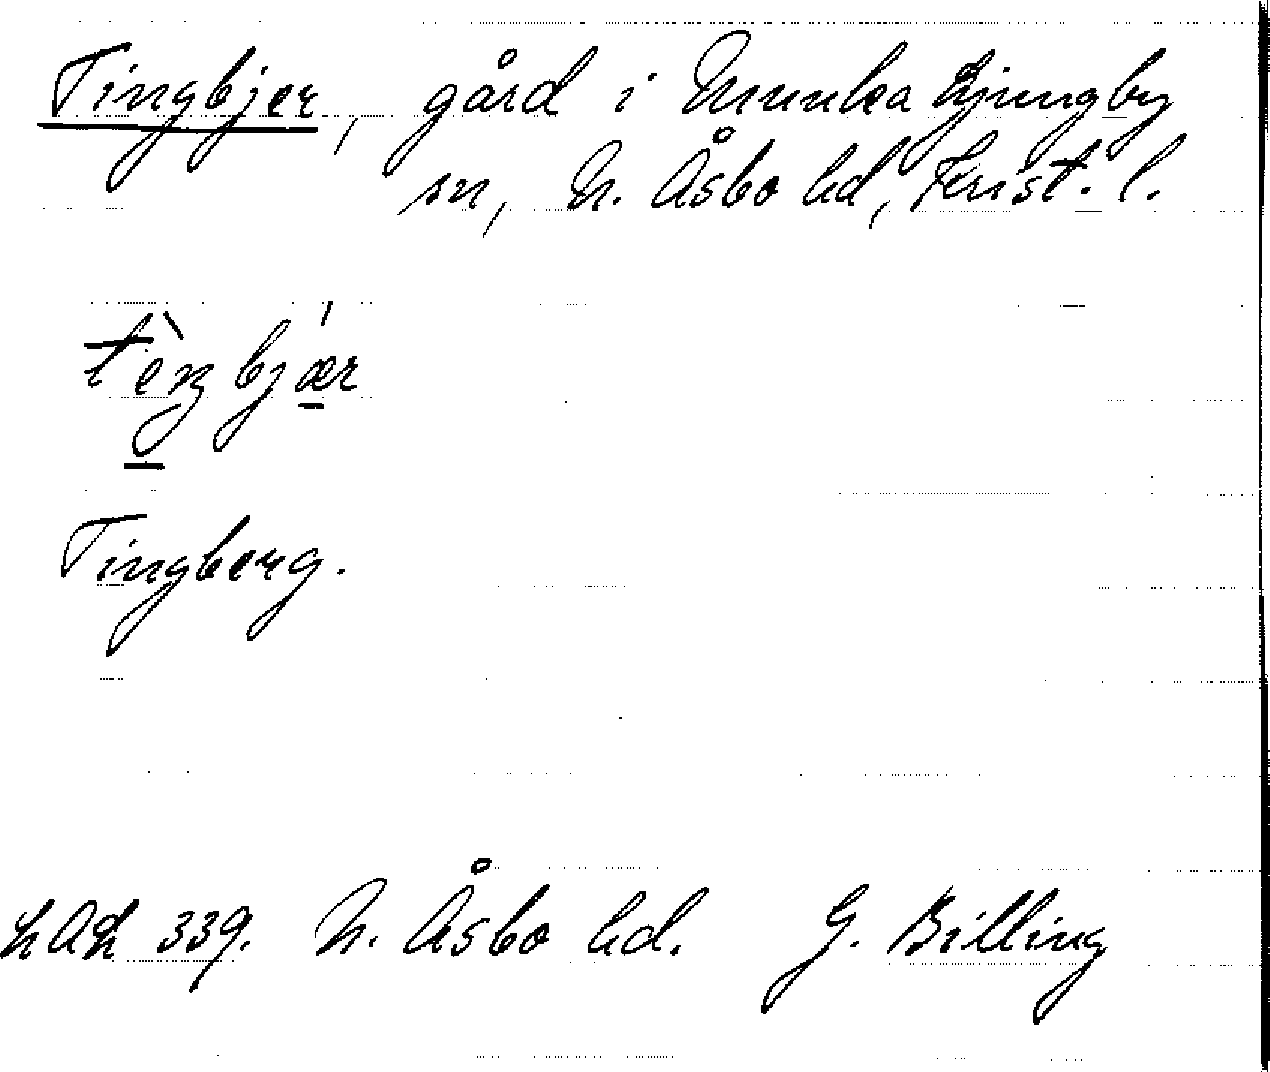 Tingbjer, gård i Munka Ljungby
sn, N. Åsbo hd, Krist. l.
tèŋbjǽr
Tingberg.
LAL 339. N. Åsbo hd. G. Billing